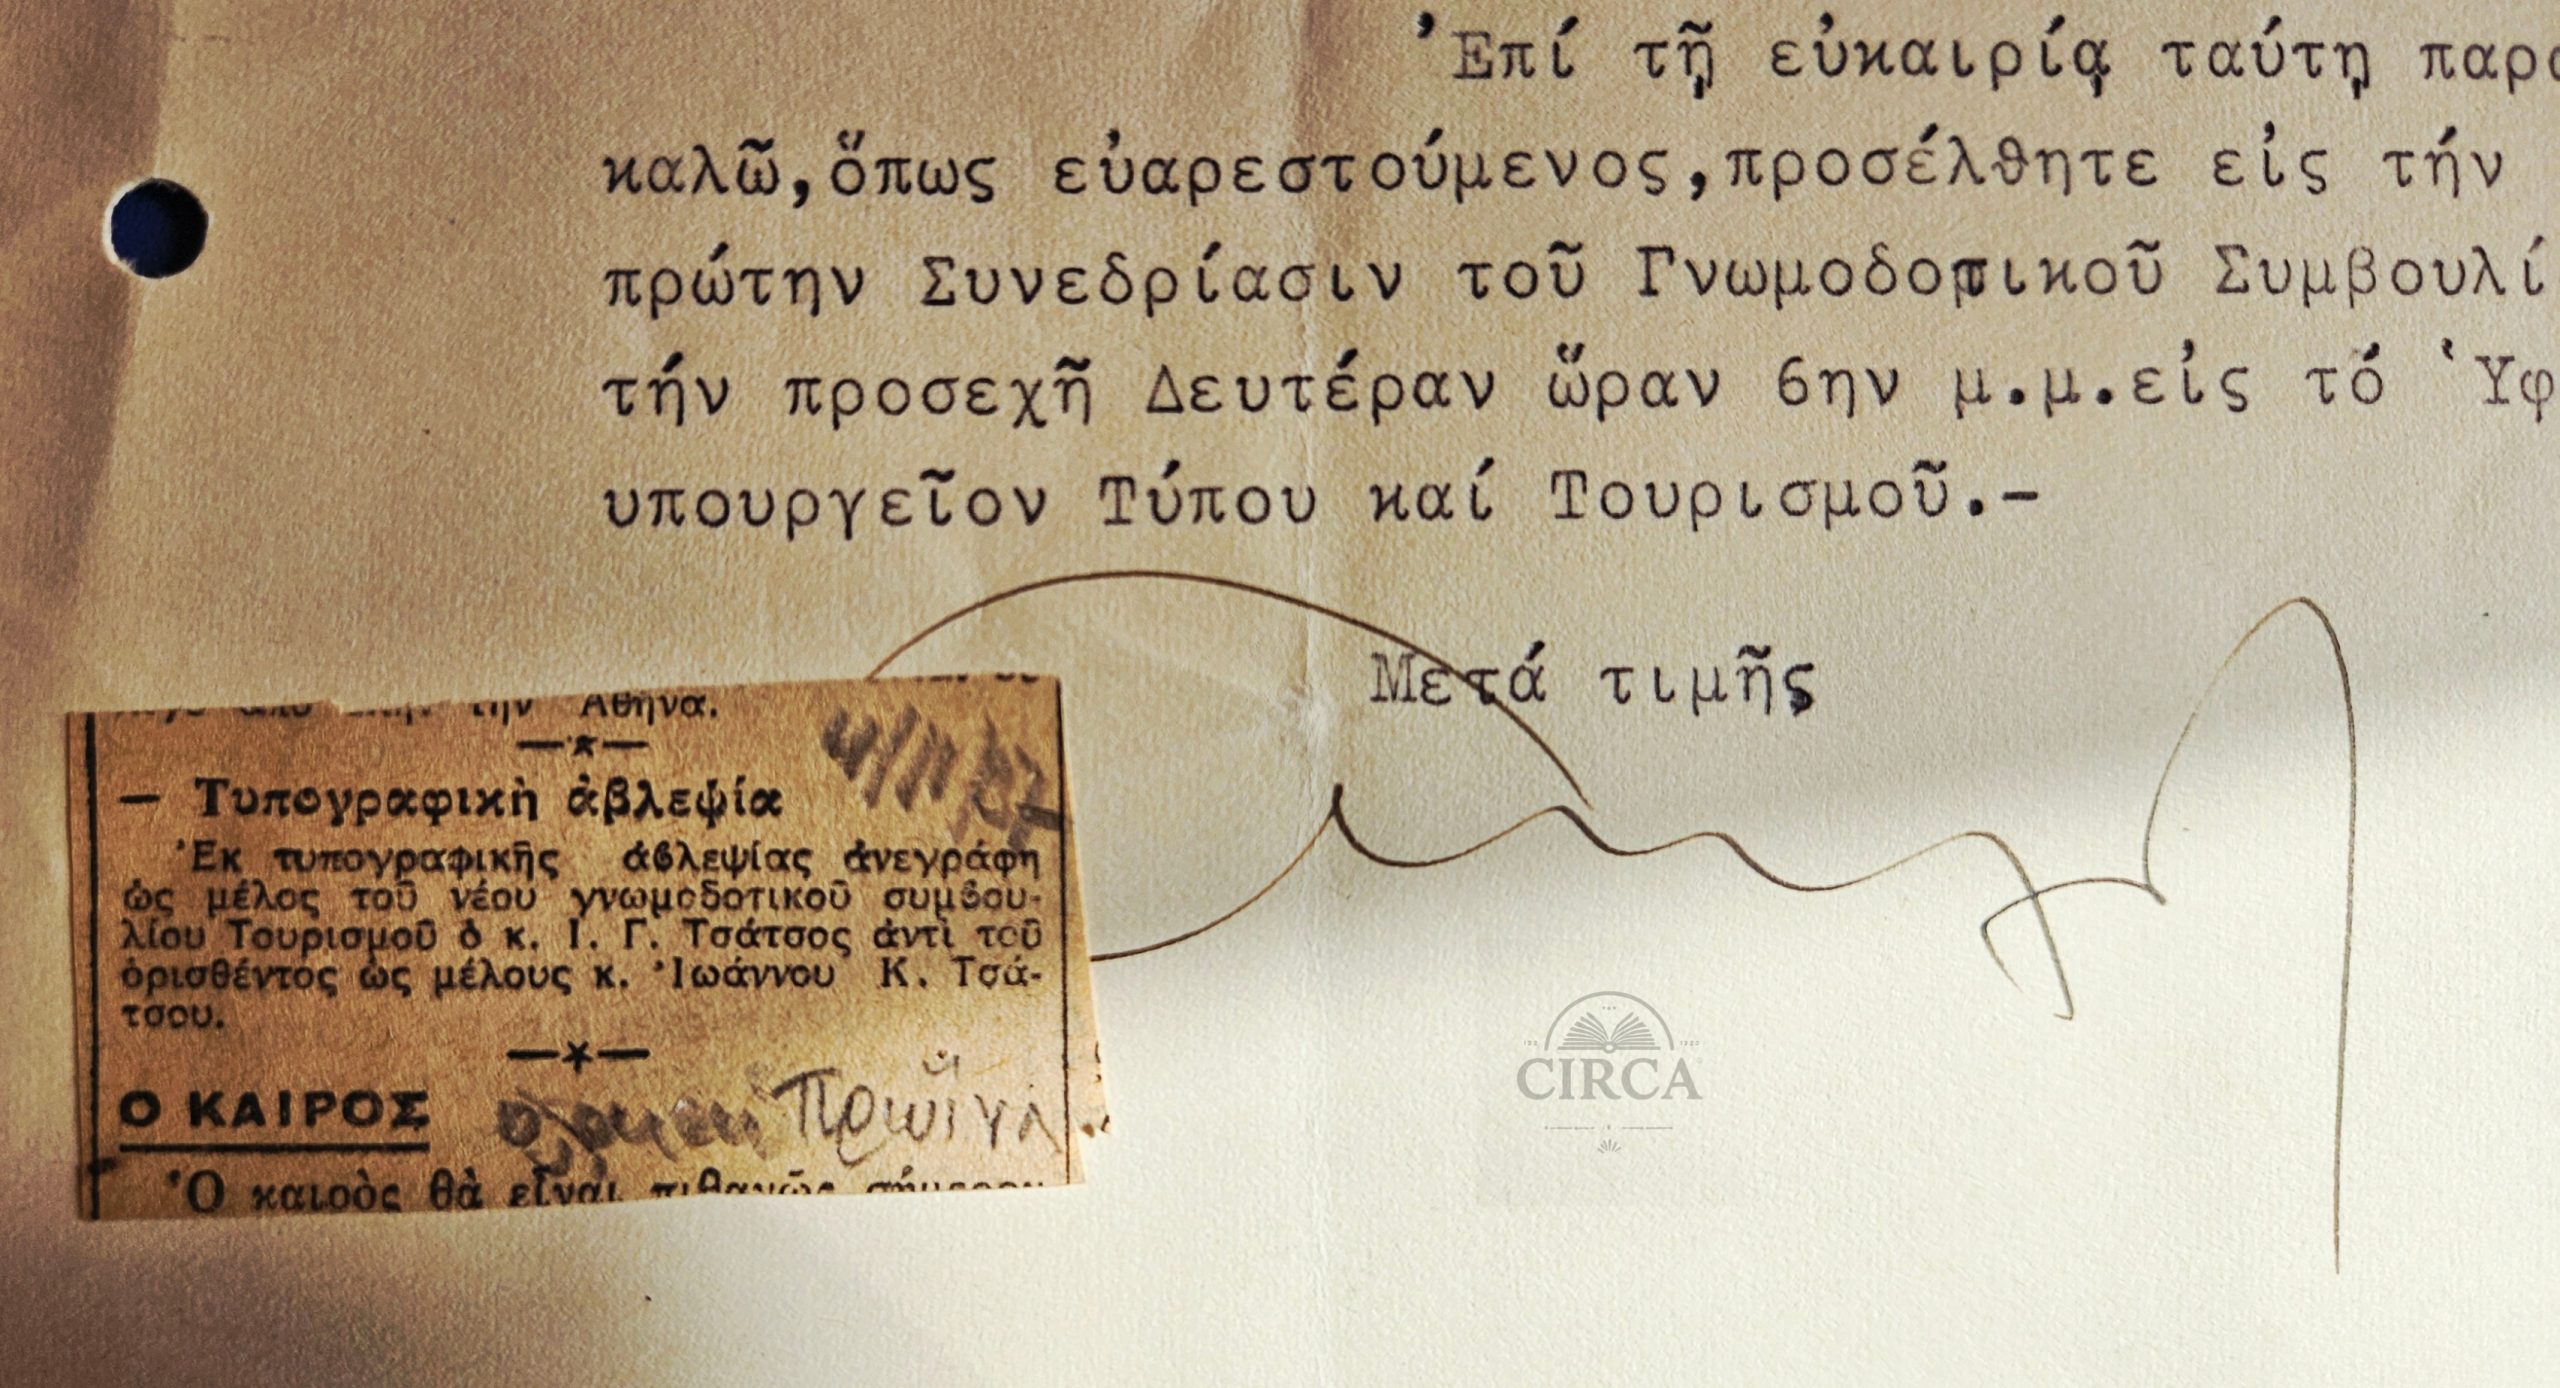 Ἐπί τῇ εὐκαιρίᾳ ταύτῃ παρα
καλῶ,ὅπως εὐαρεστούμενος,προσέλθητε εἰς τήν
πρώτην Συνεδρίασιν τοῦ Γνωμοδοτικοῦ Συμβουλί
τήν προσεχῆ Δευτέραν ὥραν 6ην μ.μ.εἰς τό Ὑφ
υπουργεῖον Τύπου καί Τουρισμοῦ.-
Μετά τιμῆς
τὴν Ἀθήνα.
— Τυπογραφικὴ ἀβλεψία
Ἐκ τυπογραφικῆς ἀβλεψίας ἀνεγράφη
ὡς μέλος τοῦ νέου γνωμοδοτικοῦ συμβου-
λίου Τουρισμοῦ ὁ κ. Ι. Γ. Τσάτσος ἀντὶ τοῦ
ὁρισθέντος ὡς μέλους κ. Ἰωάννου Κ. Τσά-
τσου.
Ο ΚΑΙΡΟΣ
Πρωϊνὴ
Ὁ καιρὸς θὰ εἶναι πιθανῶς σήμερον
CIRCA